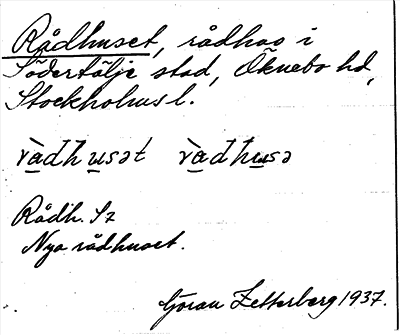 Rådhuset, rådhus i
Södertälje stad, Öknebo hd,
Stockholms l.
Rådh. Sz
Nya rådhuset.
Göran Zetterberg 1937.